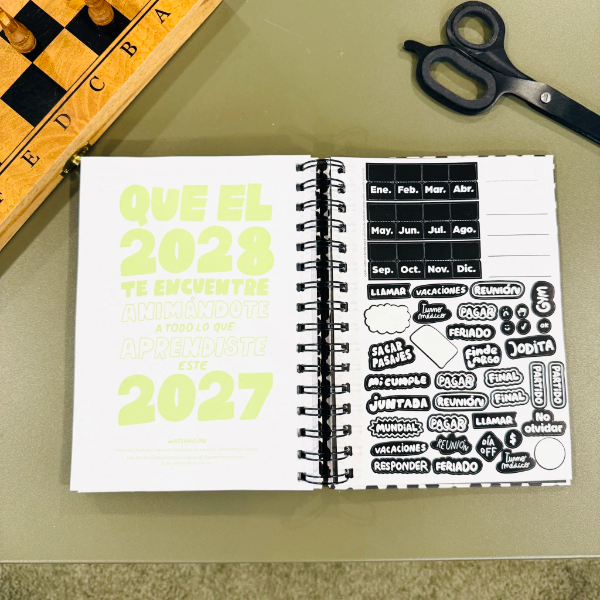 A
B
C
D
E
QUE EL
2028
TE ENCUENTRE
ANIMÁNDOTE
A TODO LO QUE
APRENDISTE
ESTE
2027
Ene. Feb. Mar. Abr.
May. Jun. Jul. Ago.
Sep. Oct. Nov. Dic.
LLAMAR VACACIONES REUNIÓN GYM
Turno médico PAGAR
FERIADO
SACAR PASAJES Finde LARGO JODITA
Mi CUMPLE PAGAR FINAL PARTIDO PARTIDO
JUNTADA REUNIÓN FINAL
MUNDIAL PAGAR LLAMAR No olvidar
VACACIONES REUNIÓN DÍA OFF $
RESPONDER FERIADO Turno médico